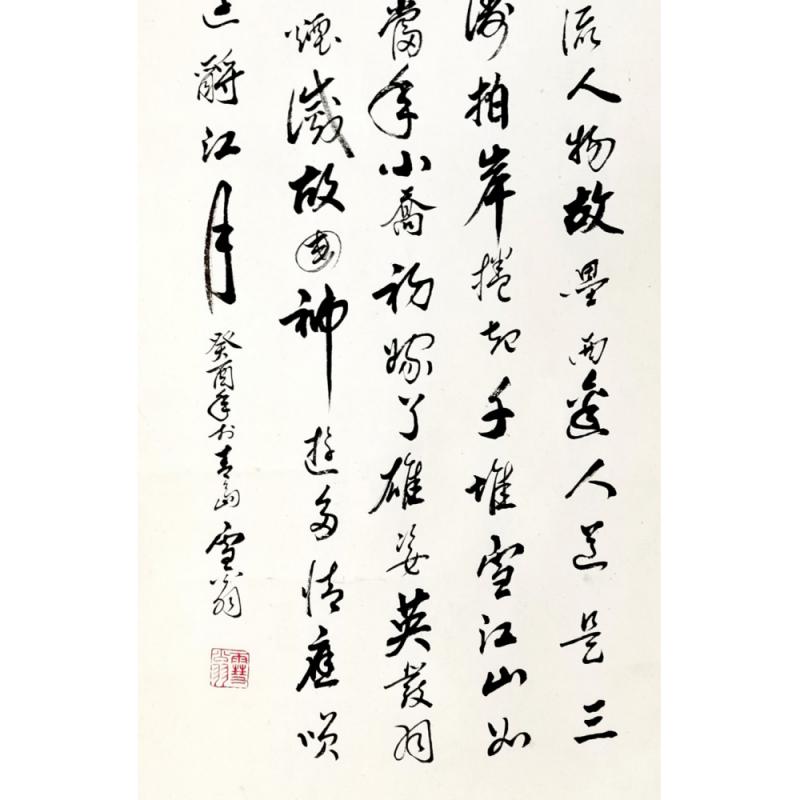 流人物故壘西邊人道是三
濤拍岸捲起千堆雪江山如
當年小喬初嫁了雄姿英發羽
煙滅故國神遊多情應咲
酹江月
癸酉年於青島 雪翁
雪翁